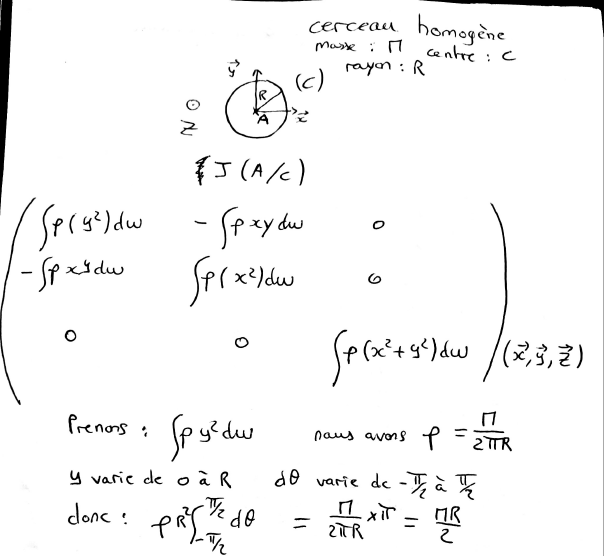 cerceau homogène
masse : M centre : C
rayon : R
y⃗ (C)
R
⊙ A x⃗
Z
J (A/c)
∫ρ(y²)dω - ∫ρxydω 0
-∫ρxydω ∫ρ(x²)dω 0
0 0 ∫ρ(x²+y²)dω (x⃗,y⃗,z⃗)
Prenons : ∫ρy²dω nous avons ρ = M/2πR
y varie de 0 à R dθ varie de -π/2 à π/2
donc : ρR²∫_{-π/2}^{π/2} dθ = M/2πR × π = MR/2